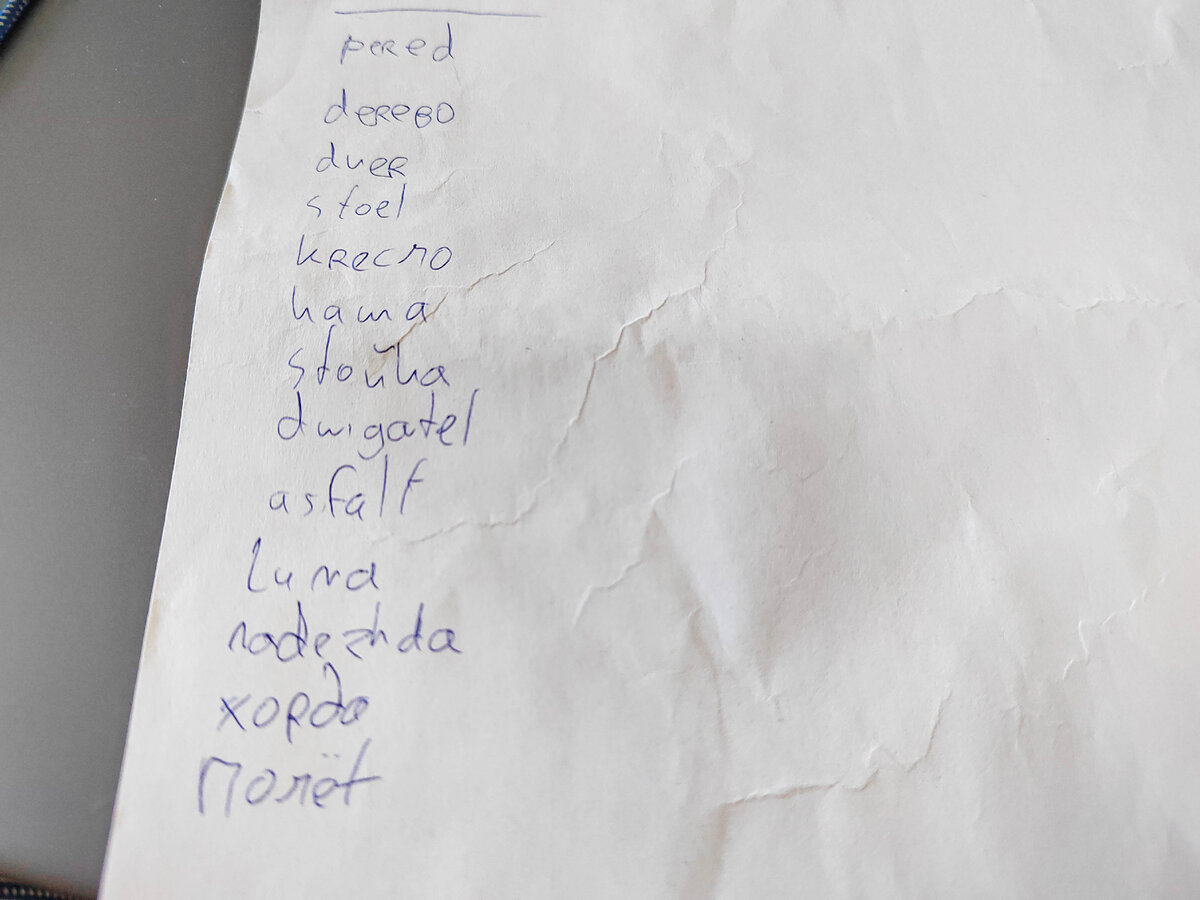 pered
deReBo
dveR
stoel
kRecлo
каша
stoйка
dwigatel
asfalt
Luna
nadezhda
хорда
Полёt